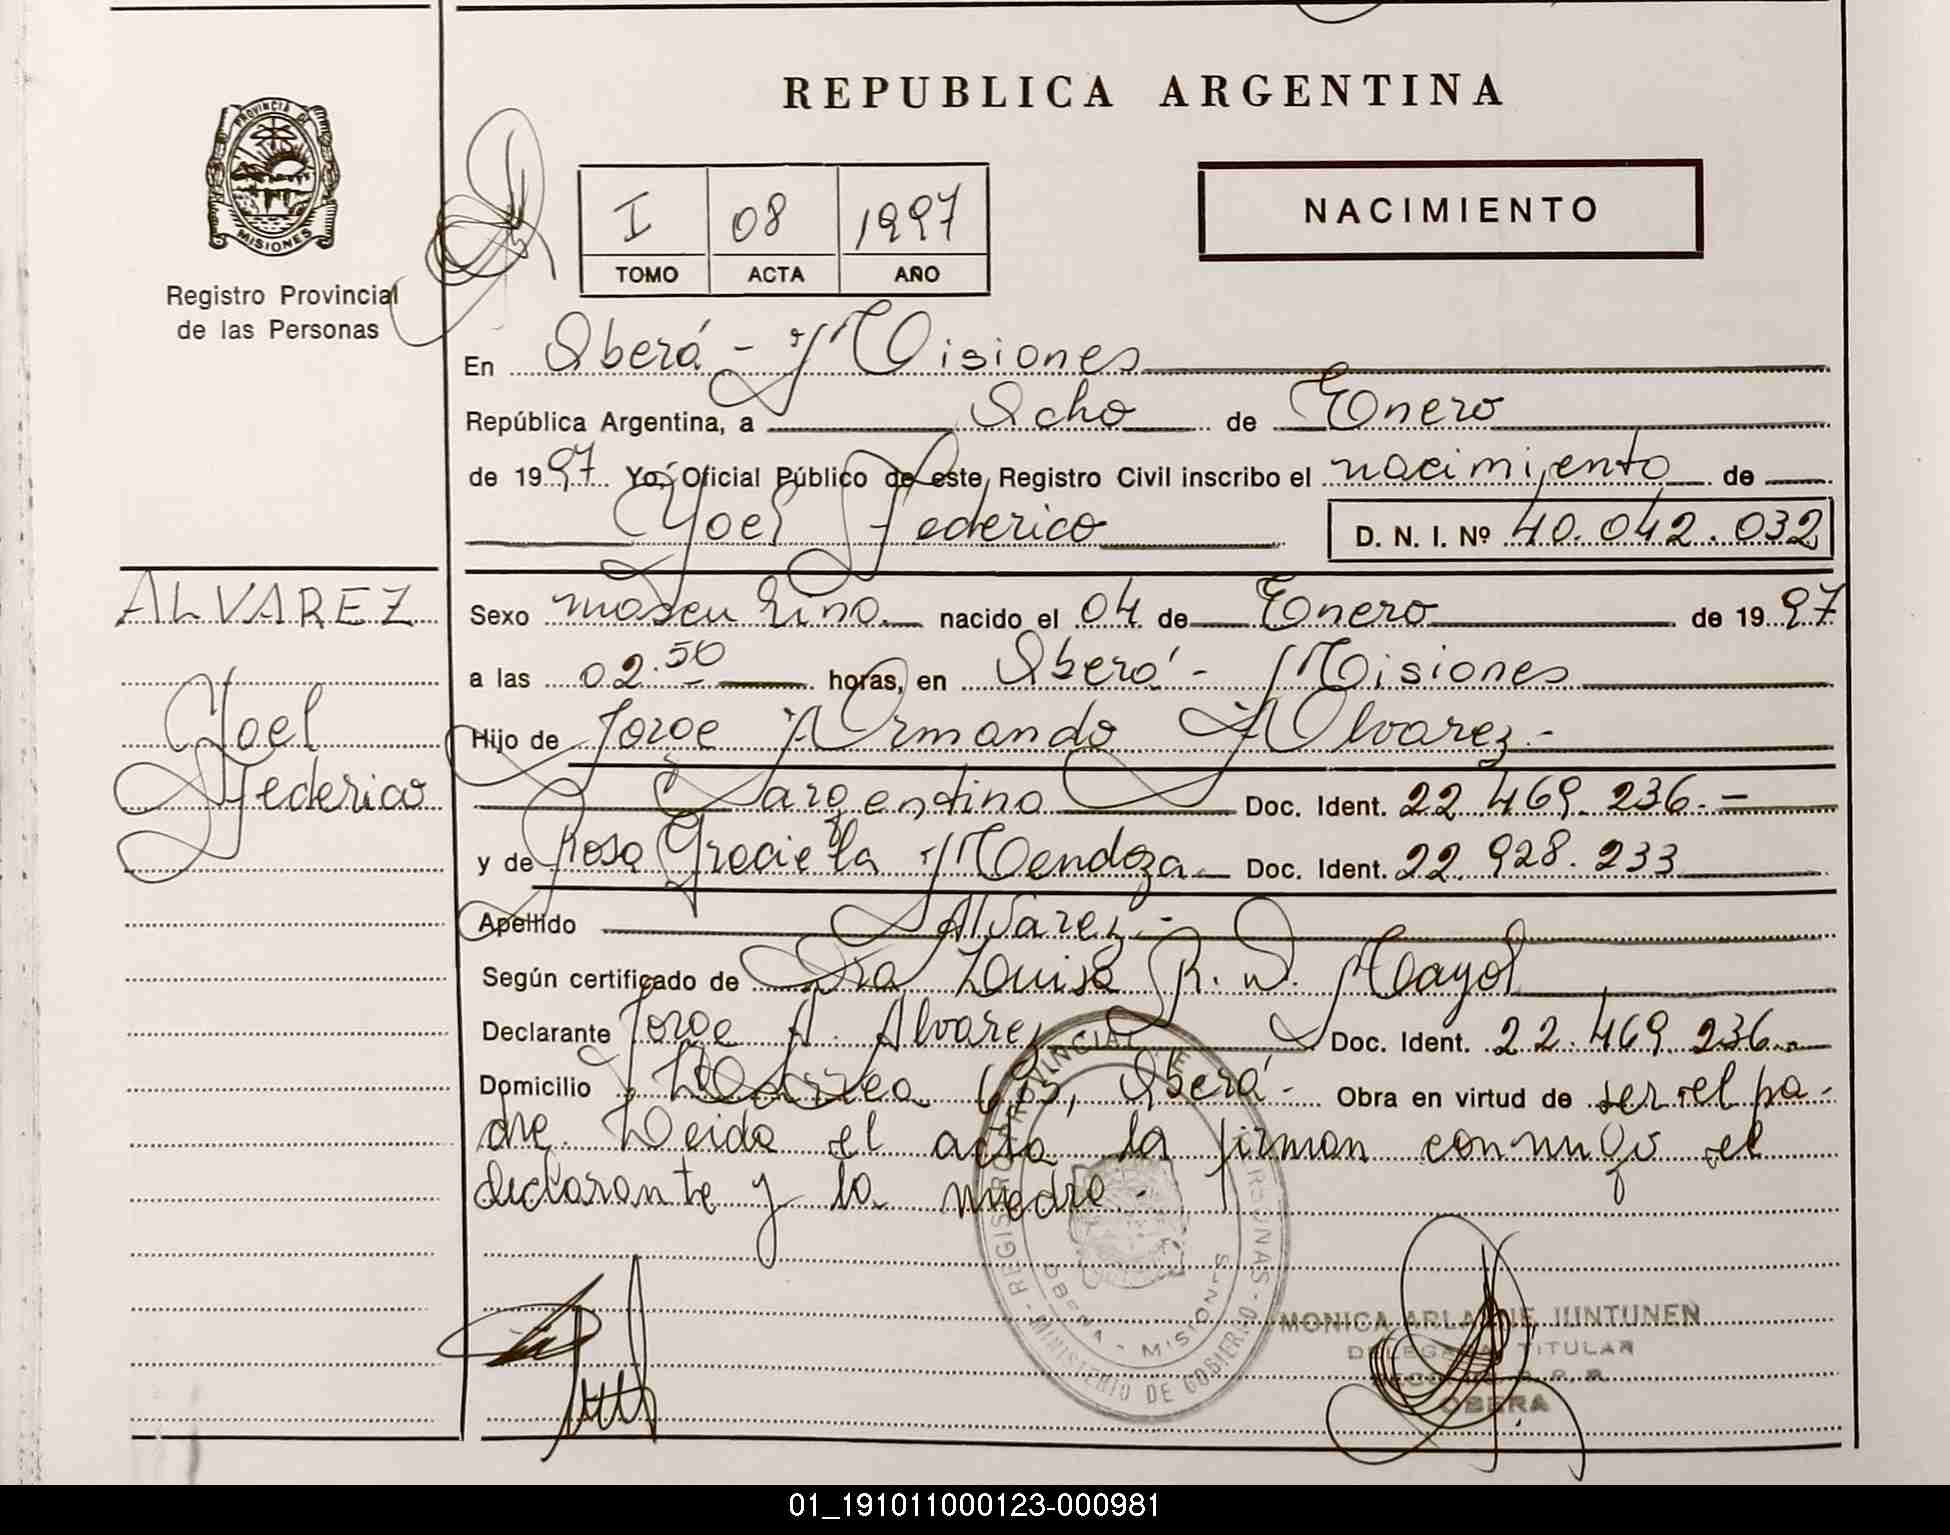 REPUBLICA ARGENTINA
PROVINCIA DE
MISIONES
Registro Provincial
de las Personas
I 08 1997
TOMO ACTA AÑO
NACIMIENTO
En Oberá - Misiones
República Argentina, a Ocho de Enero
de 1997 Yo, Oficial Público de este Registro Civil inscribo el nacimiento de
Yoel Federico D. N. I. Nº 40.042.032
ALVAREZ
Yoel
Federico
Sexo masculino nacido el 04 de Enero de 1997
a las 02.50 horas, en Oberá - Misiones
Hijo de Jorge Armando Alvarez.-
argentino Doc. Ident. 22.469.236.-
y de Rosa Graciela Mendoza Doc. Ident. 22.928.233
Apellido Alvarez.-
Según certificado de Dra Luisa R. D. Mayol
Declarante Jorge A. Alvarez Doc. Ident. 22.469.236.-
Domicilio Oberá - Obra en virtud de ser el pa-
dre. Leida el acta la firman conmigo el
declarante y la madre.-
REGISTRO PROVINCIAL DE PERSONAS - MINISTERIO DE GOBIERNO
OBERA - MISIONES
MONICA ARLAINE JUNTUNEN
DELEGADA TITULAR
OBERA
01_191011000123-000981